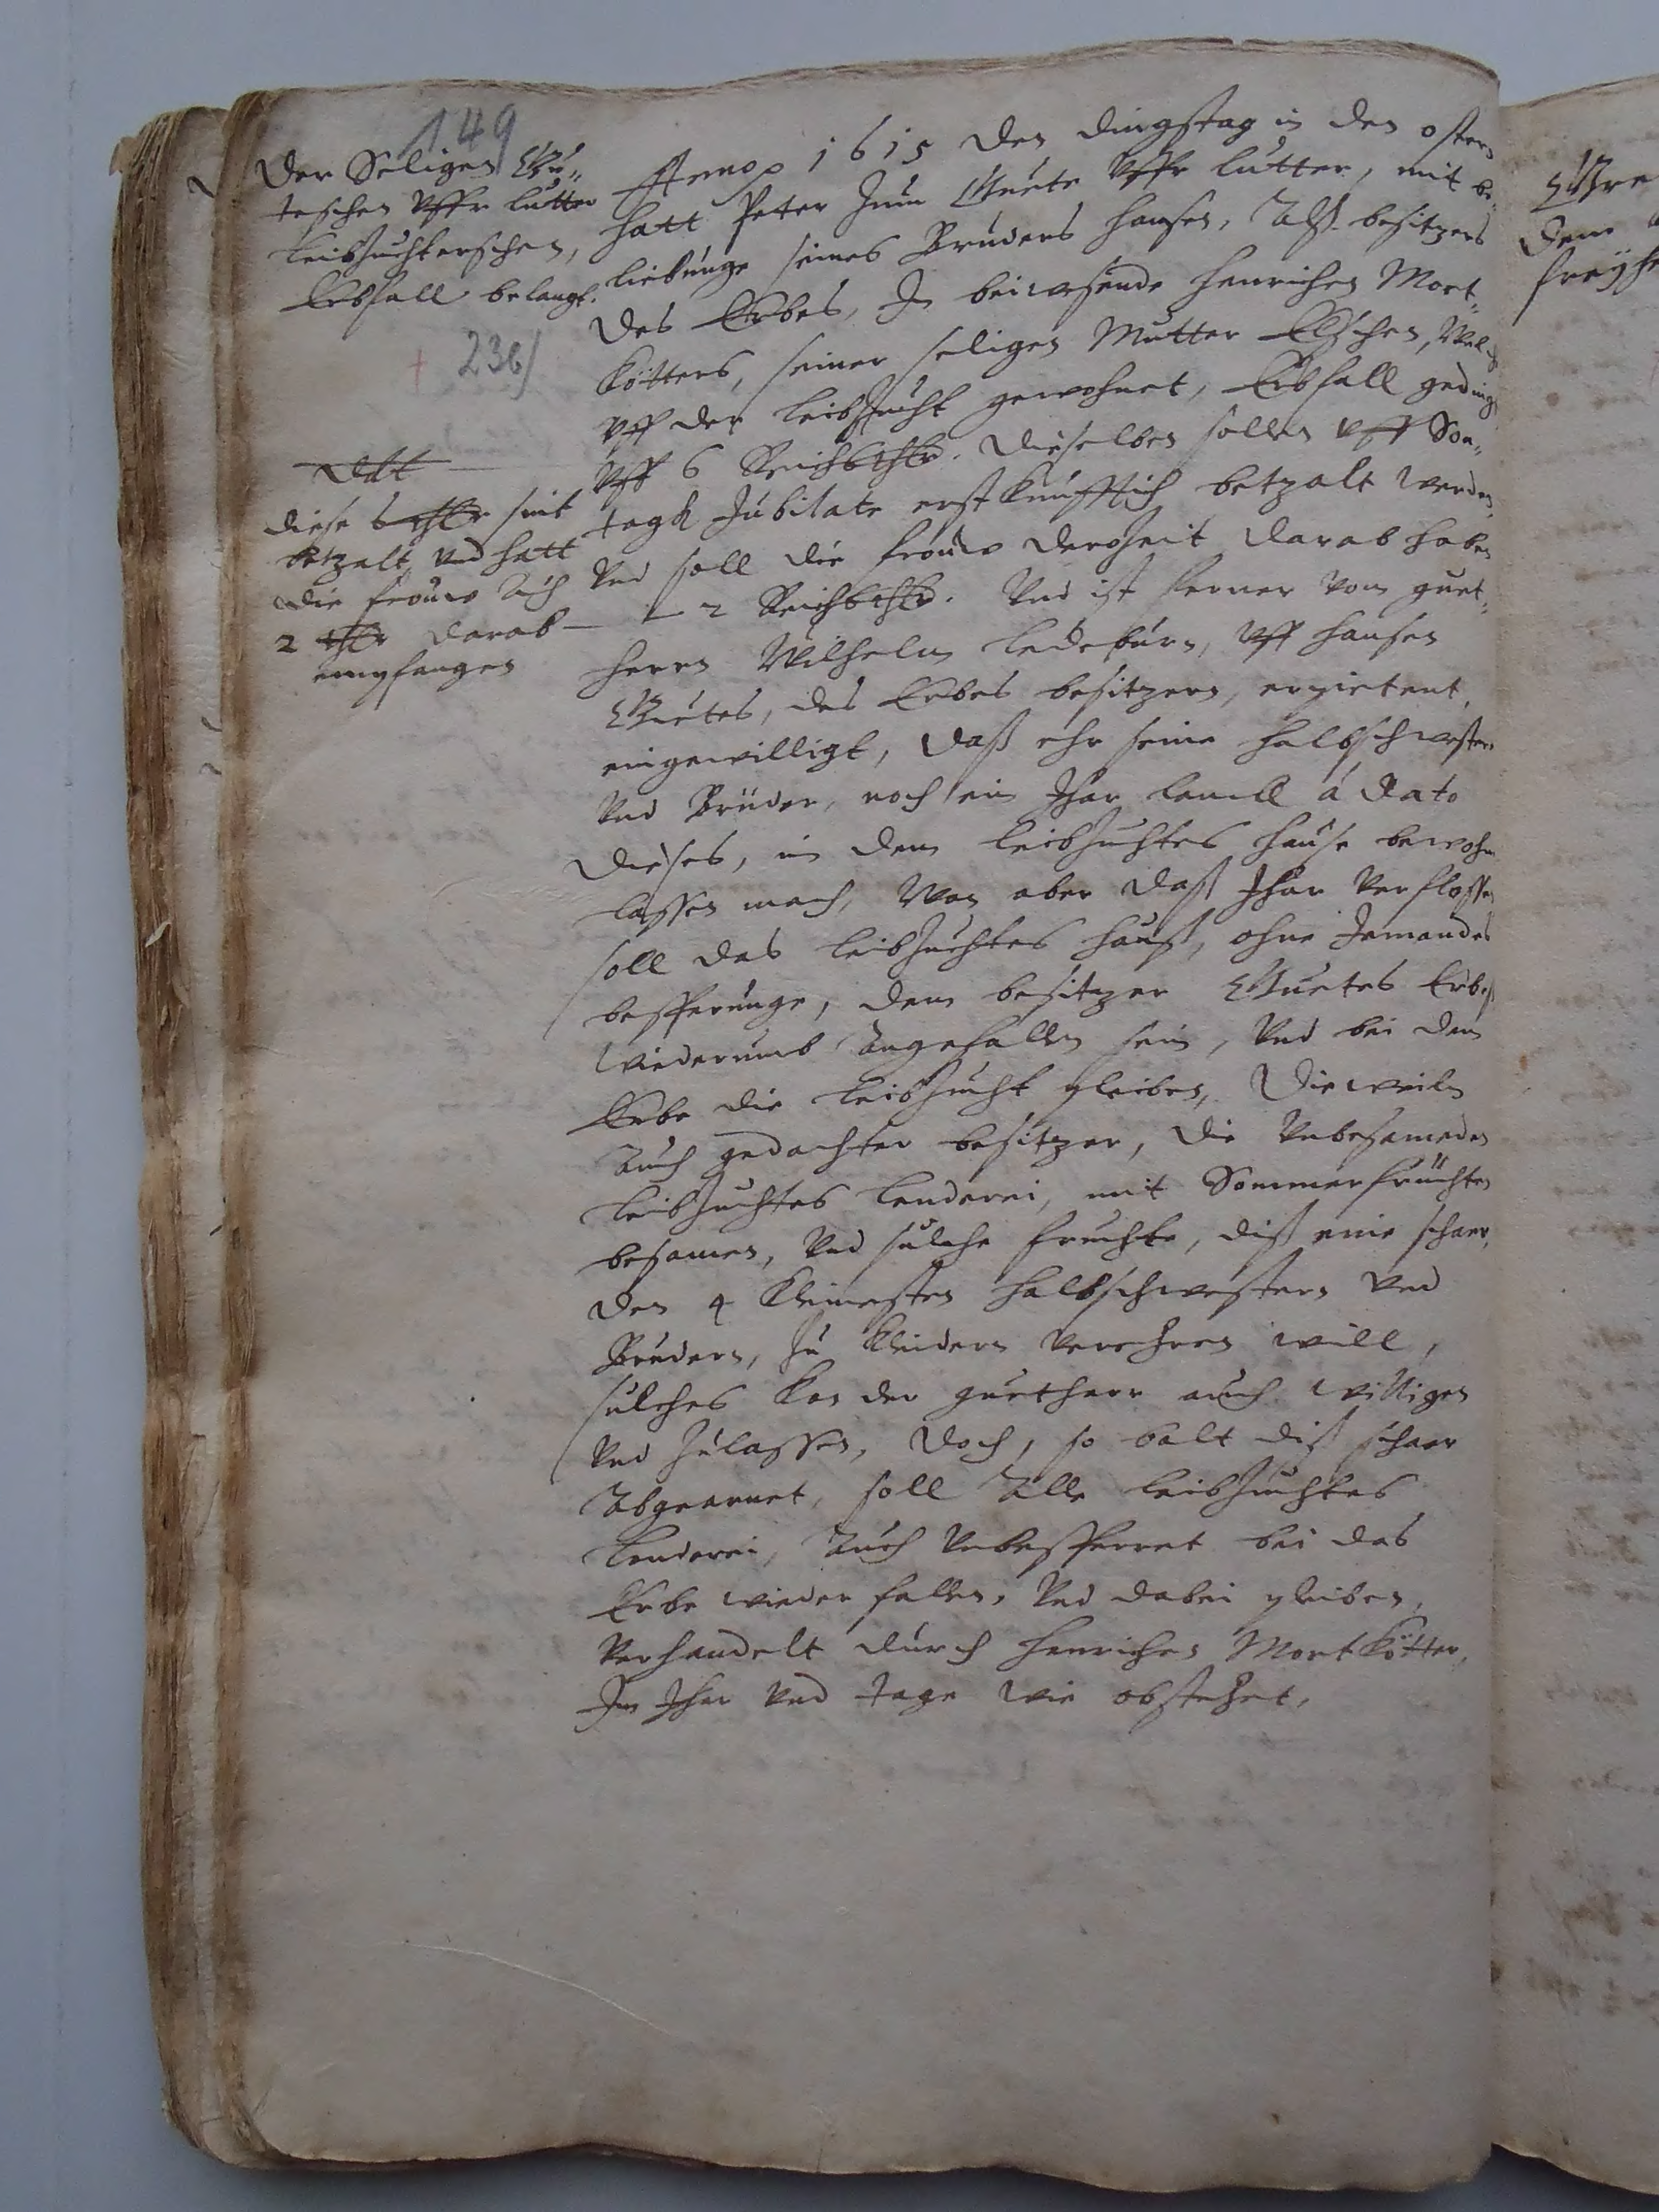 149
Der Seligen Gue„
teschen uffr Lutter
Leibzuchterschen,
Erbfall belangt.
236/
ddt
diese 6 thlr sint
betzalt und hatt
die frouw Ach
2 thlr darab
empfangen
Anno 1615 den dingstag in den ostern
hatt Peter Zum Guete uffr Lutter, mit be„
liebunge seines Bruders Hansen, Alß besitzers
des Erbes, In beiwesende Henrichen Mort„
kötters, seiner seligen Mutter Elschen, Welch
uff der Leibzucht gewohnet, Erbfall gedingt
uff 6 Reichsthlr. Dieselben sollen uff Son„
tagh Jubilate erstkunfftich betzalt werden,
und soll die frouw deroheit darab haben
2 Reichsthlr. Und ist ferner vom guet„
herrn Wilhelm Ledeburn, uff Hansen
Guetes, des Erbes besitzern,
eingewilligt, daß ehr seine halbschwestern
und Brüder, noch ein Jhar à dato
dieses, in dem Leibzuchtes hause bewohn
lassen mach, Wan aber daß Jhar verflossen
soll das Leibzuchtes hauß, ohne Jemandes
besserunge, dem besitzer Guetes Erbes
wiederumb angefallen sein, und bei dem
Erbe die Leibzucht pleiben, Dieweiln
Auch gedachter besitzer, die unbesameden
Leibzuchtes Lenderei, mit Sommerfrüchten
besamen, und sulche fruchte, diß eine schaer,
den 4 kleinesten halbschwestern und
Brudern, zu kleidern verehren will,
sulches kan der guetherr auch willigen
und zulassen, doch, so balt diß schaer
Abgearnet, soll Alle Leibzuchtes
Lenderei, Auch unbesserret bei das
Erbe wieder fallen, und dabei pleiben,
verhandelt durch Henrichen Mortkötter,
Im Jhar und tage wie obstehet,